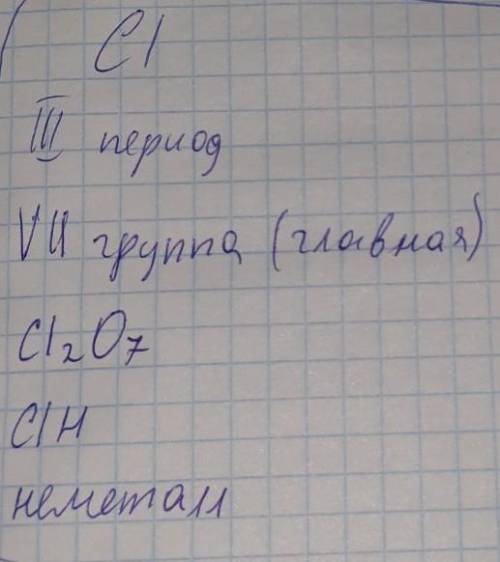 Cl
III период
VII группа (главная)
Cl₂O₇
ClH
неметалл